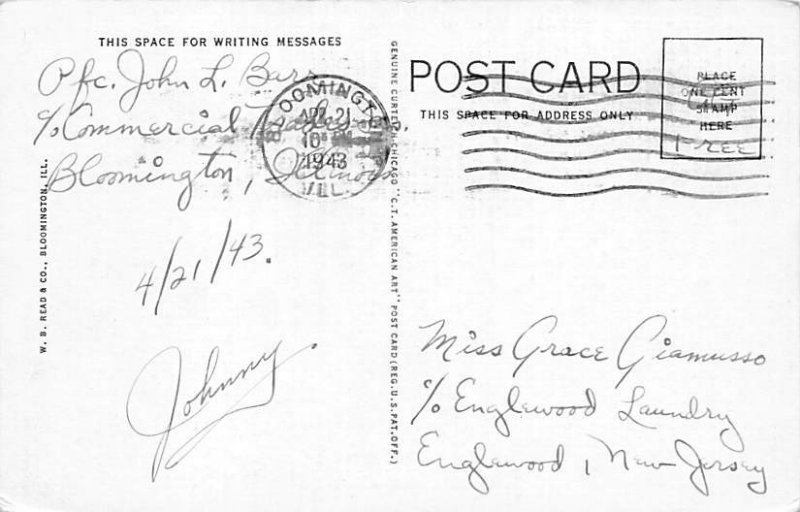 THIS SPACE FOR WRITING MESSAGES
Pfc. John L. Barr
℅ Commercial
Bloomington, Illinois
4/21/43.
Johnny.
BLOOMINGTON
APR 21
10
1943
ILL.
W. B. READ & CO., BLOOMINGTON, ILL.
GENUINE CURTEICH-CHICAGO "C.T. AMERICAN ART" POST CARD (REG. U.S. PAT. OFF.)
POST CARD
THIS SPACE FOR ADDRESS ONLY
PLACE
ONE CENT
STAMP
HERE
Free
Miss Grace Giamusso
℅ Englewood Laundry
Englewood, New Jersey